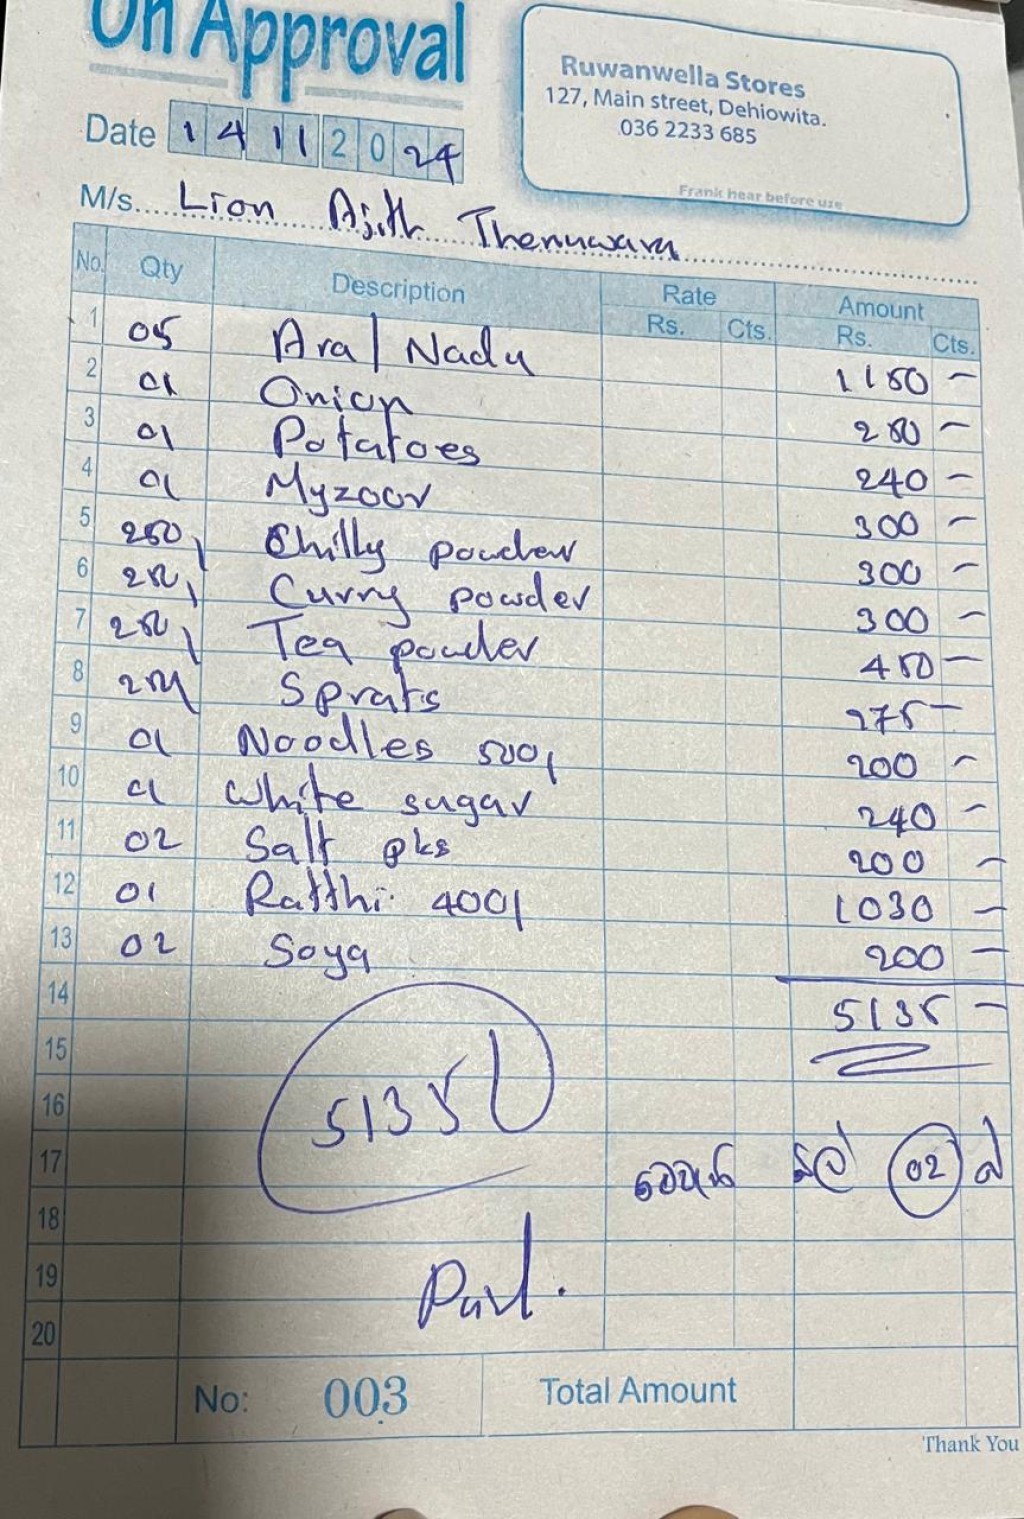 On Approval
Ruwanwella Stores
127, Main street, Dehiowita.
036 2233 685
Frank hear before use
Date 14 11 2024
M/s. Lion Ajith Thenuwara
No. Qty Description Rate Amount
Rs. Cts. Rs. Cts.
1 05 Ara / Nadu 1150 -
2 01 Onion 280 -
3 01 Potatoes 240 -
4 01 Myzoor 300 -
5 250g Chilly powder 300 -
6 250g Curry powder 300 -
7 250g Tea powder 450 -
8 250g Sprats 275 -
9 01 Noodles 500g 200 -
10 01 White sugar 240 -
11 02 Salt pks 200 -
12 01 Ratthi 400g 1030 -
13 02 Soya 200 -
14 5135 -
15
16 5135
17 02
18
19
20
No: 003 Total Amount
Thank You